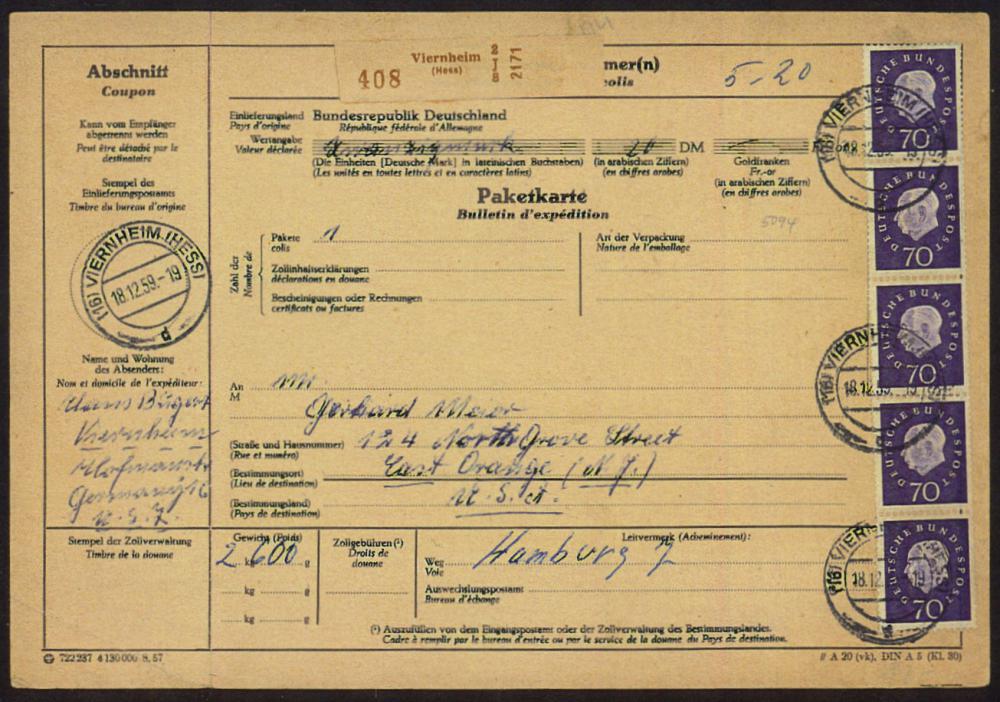 Abschnitt
Coupon
Kann vom Empfänger
abgetrennt werden
Peut être détaché par le
destinataire
Stempel des
Einlieferungspostamts
Timbre du bureau d'origine
(16) VIERNHEIM (HESS)
18.12.59.-19
Name und Wohnung
des Absenders:
Nom et domicile de l'expéditeur:
Viernheim
Stempel der Zollverwaltung
Timbre de la douane
408
Viernheim
(Hess)
2171
mer(n)
olis
5-20
Einlieferungsland Bundesrepublik Deutschland
Pays d'origine République fédérale d'Allemagne
Wertangabe
Valeur déclarée
DM
(Die Einheiten [Deutsche Mark] in lateinischen Buchstaben)
(Les unités en toutes lettres et en caractères latins)
(in arabischen Ziffern)
(en chiffres arabes)
Goldfranken
Fr.-or
(in arabischen Ziffern)
(en chiffres arabes)
Paketkarte
Bulletin d'expédition
5094
Zahl der
Nombre de
Pakete 1
colis
Zollinhaltserklärungen
déclarations en douane
Bescheinigungen oder Rechnungen
certificats ou factures
Art der Verpackung
Nature de l'emballage
An
M
Mr.
Gerhard Meier
(Straße und Hausnummer) 124 North Grove Street
(Rue et numéro)
(Bestimmungsort) East Orange (N.J.)
(Lieu de destination)
(Bestimmungsland) U.S.A.
(Pays de destination)
Gewicht (Poids)
2 kg 600 g
kg g
kg g
Zollgebühren (¹)
Droits de
douane
Leitvermerk (Acheminement):
Weg Hamburg 7
Voie
Auswechslungspostamt
Bureau d'échange
(¹) Auszufüllen von dem Eingangspostamt oder der Zollverwaltung des Bestimmungslandes.
Cadre à remplir par le bureau d'entrée ou par le service de la douane du Pays de destination.
722 287 4 130 000 8. 57
# A 20 (vk), DIN A 5 (Kl. 30)
DEUTSCHE BUNDESPOST
70
DEUTSCHE BUNDESPOST
70
DEUTSCHE BUNDESPOST
70
DEUTSCHE BUNDESPOST
70
DEUTSCHE BUNDESPOST
70